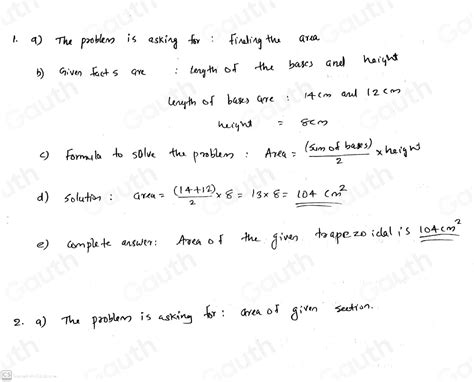 1. a) The problem is asking for : finding the area
b) Given facts are : length of the bases and height
length of bases are : 14 cm and 12 cm
height = 8 cm
c) Formula to solve the problem : Area = (sum of bases)/2 × height
d) Solution : area = (14+12)/2 × 8 = 13 × 8 = 104 cm²
e) Complete answer: Area of the given trapezoidal is 104 cm²
2. a) The problem is asking for : area of given section.
CS